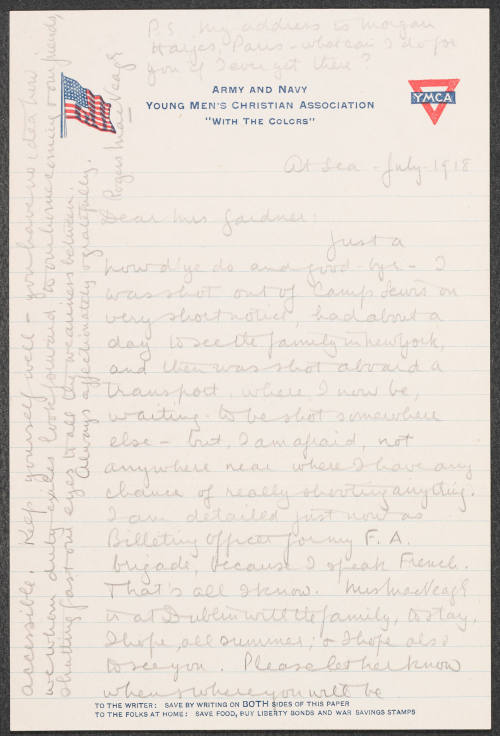 P.S. My address is Morgan
Harjes, Paris - what can I do for
you if I ever get there?
ARMY AND NAVY
YOUNG MEN'S CHRISTIAN ASSOCIATION
"WITH THE COLORS"
YMCA
At Sea - July - 1918
Dear Mrs Gardner:
Just a
how d'ye do and good-bye - I
was shot out of Camp Lewis on
very short notice, had about a
day to see the family in New York,
and then was shot aboard a
transport, where I now be,
waiting to be shot somewhere
else - but, I am afraid, not
anywhere near where I have any
chance of really shooting anything.
I am detailed just now as
Billeting Officer for my F. A.
brigade, because I speak French.
That's all I know. Mrs MacVeagh
is at Dublin with the family, to stay,
I hope, all summer; & I hope also
to see you. Please let her know
when & where you will be
TO THE WRITER: SAVE BY WRITING ON BOTH SIDES OF THIS PAPER
TO THE FOLKS AT HOME: SAVE FOOD, BUY LIBERTY BONDS AND WAR SAVINGS STAMPS
accessible. Keep yourself well - you have no idea how
we whom duty exiles look forward to our homecoming & our friends,
shutting fast our eyes to all the weariness between.
Always affectionately & gratefully,
Rogers MacVeagh